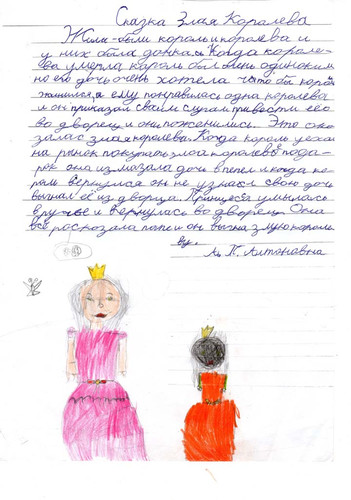 Сказка Злая Королева
Жили-были король и королева и
у них была дочка. Когда короле-
ва умерла король был очень одиноким
но его дочь очень хотела что бы король
женился, а ему понравилась одна королева
и он приказал своим слугам привести её
во дворец и они поженились. Это ока
залас злая королева. Когда король уехал
на рынок покупать злой королеве пода-
рок она измазала дочь в пепел и когда ко-
роль вернулся он не узнал свою дочь
выгнал её из дворца. Принцесса умылась
в ручье и вернулась во дворец. Она
всё расказала папе и он выгнал злую короле
ву.
А. П. Антоновна